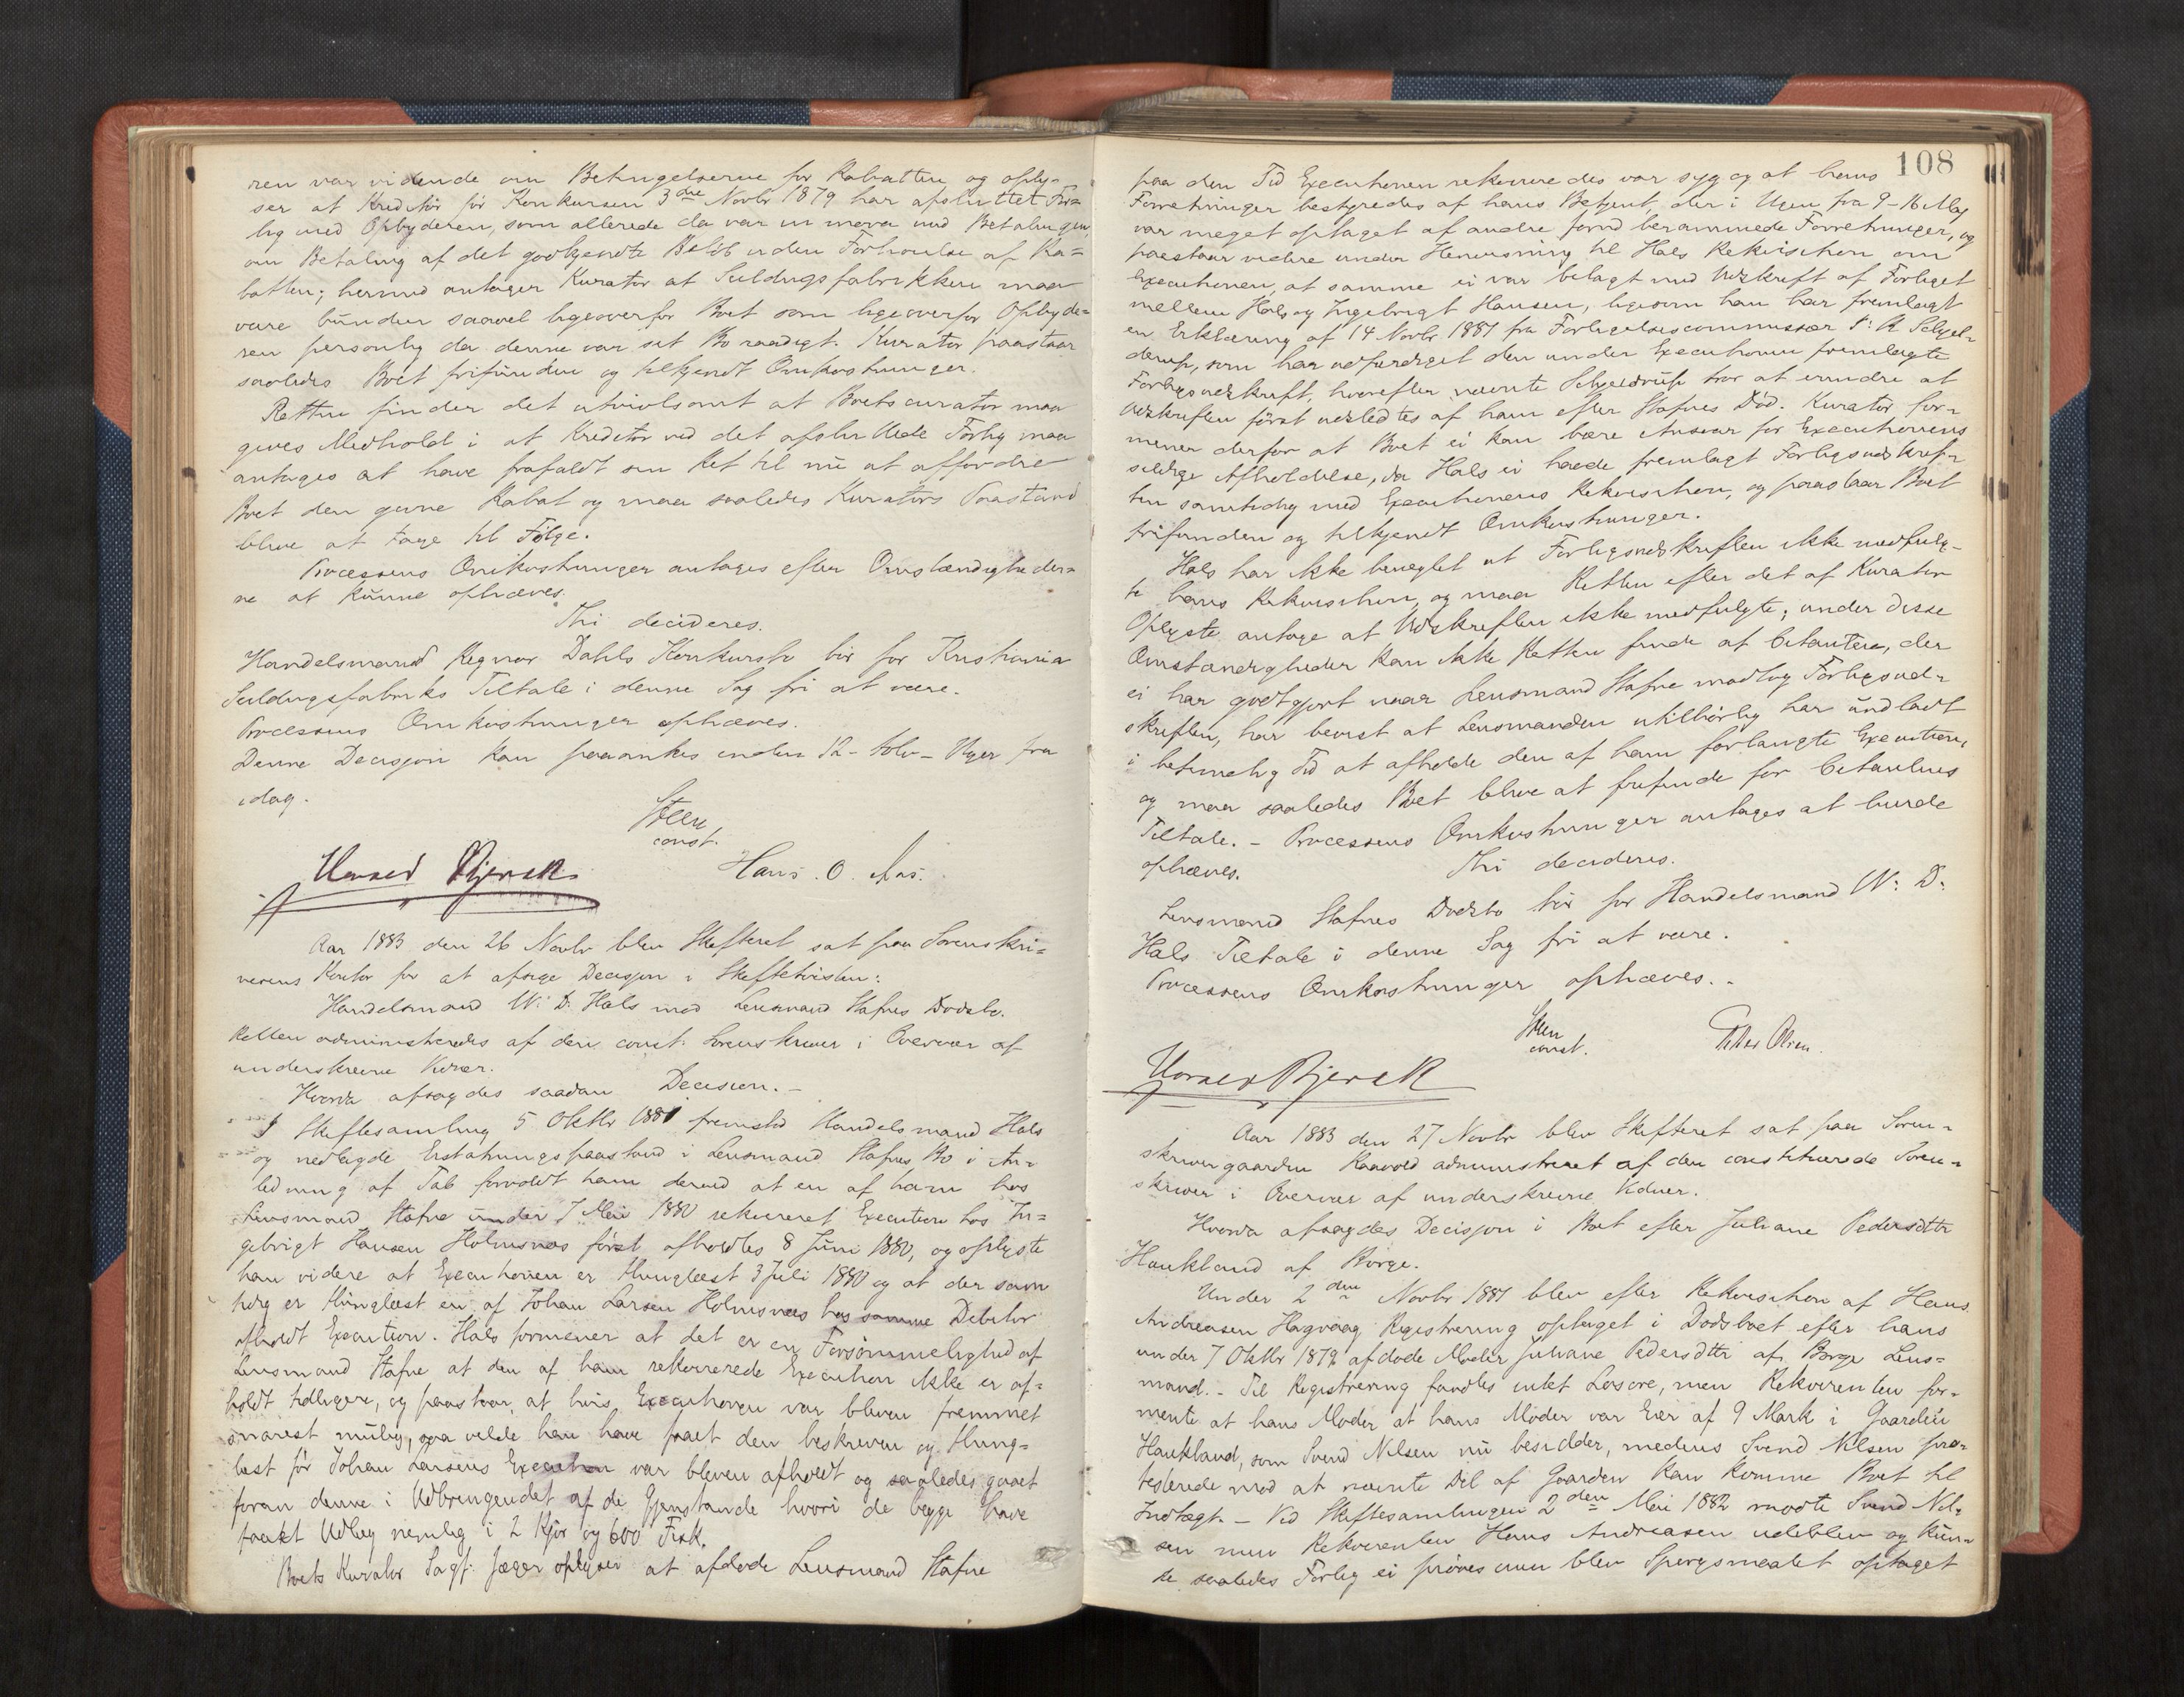 ren var vidende om Betingelserne for Rabatten og oply-
ser at Kreditor før Konkursen 3die Novbr 1879 har afsluttet For-
lig med Opbyderen, som allerede da var in mora med Betalingen,
om Betaling af det godkjendte Beløb uden Forhøielse af Ra=
batten; hermed antager Kurator at Sildugsfabrikken maa
være bunden saavel ligeoverfor Boet som ligeoverfor Opbyde=
ren personlig da denne var sit Bo raadigt. Kurator paastaar
saaledes Boet frifunden og tilkjendt Omkostninger.
Retten finder det utvivlsomt at Boets curator maa
gives Medhold i at Kreditor ved det afsluttede Forlig maa
antages at have frafaldt sin Ret til nu at affordre
Boet den givne Rabat og maa saaledes Kurators Paastand
blive at tage til Følge.
Processens Omkostninger antages efter Omstændigheder=
ne at kunne ophæves.
Thi decideres.
Handelsmand Regnor Dahls Konkursbo bør for Kristiania
Seildugsfabriks Tiltale i denne Sag fri at være.
Processens Omkostninger ophæves.
Denne Decisjon kan paaankes inden 12 - tolv - Uger fra
idag.
Steen
const.
Hans. O. Aas.
Aar 1883 den 26 Novbr blev Skifteret sat paa Sorenskri=
verens Kontor for at afsige Decisjon i Skiftetvisten:
Handelsmand W: D: Hals mod Lensmand Stafnes Dødsbo.
Retten administreredes af den const. Sorenskriver i Overvær af
underskrevne Vidner.
Hvorda afsagdes saadan Decision.-
I Skiftesamling 5 Oktbr 1881 fremstod Handelsmand Hals
og nedlagde Erstatningspaastand i Lensmand Stafnes Bo i An=
ledning af Tab forvoldt ham derved at en af ham hos
Lensmand Stafne under 7 Mai 1880 rekvireret Execution hos In=
gebrigt Hansen Holmsnæs først afholdtes 8 Juni 1880, og oplyste
han videre at Executionen er thinglæst 3 Juli 1880 og at der sam
tidig er thinglæst en af Johan Larsen Holmsnæs hos samme Debitor
afholdt Execution. Hals formener at det er en Forsømmelighed af
Lensmand Stafne at den af ham rekvirerede Execution ikke er af=
holdt tidligere, og paastaar, at hvis Executionen var bleven fremmet
snarest mulig, saa vilde han have faaet den beskreven og thing=
læst før Johan Larsens Execution var bleven afholdt og saaledes gaaet
foran denne i Udbringendet af de Gjenstande hvori de begge have
taakt Udlæg nemlig i 2 Kjør og 600 Fisk.
Boets Kurator Sagf: Jæger oplyser at afdøde Lensmand Stafne
108
paa den Tid Executionen rekvireredes var syg og at hans
Forretninger bestyredes af hans Betjent, der i Ugen fra 9-16 Mai
var meget optaget af andre forud berammede Forretninger, og
paastaar videre under Henvisning til Hals Rekvisition om
Executionen, at samme ei var belagt med Udskrift af Forliget
mellem Hals og Ingebrigt Hansen, ligesom han har fremlagt
en Erklæring af 14 Novbr 1881 fra Forligelsescommissær P: A Schjel=
derup, som har udfærdiget den under Executionen fremlagte
Forligsudskrift, hvorefter nævnte Schjelderup tror at erindre at
Udskriften først udstedtes af ham efter Stafnes Død. Kurator for=
mener derfor at Boet ei kan bære Ansvar for Executionens
sildige Afholdelse, da Hals ei havde fremlagt Forligsudskrif=
ten samtidig med Executionens Rekvisition, og paastaar Boet
frifunden og tilkjendt Omkostninger.
Hals har ikke benegtet at Forligsudskriften ikke medfulg-
te hans Rekvisition, og maa Retten efter det af Kurator
Oplyste antage at Udskriften ikke medfulgte; under disse
Omstændigheder kan ikke Retten finde at Citanten, der
ei har godtgjort naar Lensmand Stafne modtog Forligsud=
skriften, har bevist at Lensmanden utilbørlig har undladt
i betimelig Tid at afholde den af ham forlangte Execution,
og maa saaledes Boet blive at frifinde for Citantens
Tiltale. - Processens Omkostninger antages at burde
ophæves.
Thi decideres.
Lensmand Stafnes Dødsbo bør for Handelsmand W: D:
Hals Tiltale i denne Sag fri at være.
Processens Omkostninger ophæves..
Steen
const.
Petter Olsen.
Aar 1883 den 27 Novbr blev Skifteret sat paa Soren=
skrivergaarden administreret af den constituerede Soren=
skriver i Overvær af underskrevne Vidner.
Hvorda afsagdes Decisjon i Boet efter Juliane Pedersdtr
Haukland af Borge.
Under 2den Novbr 1881 blev efter Rekvisition af Hans
Andreasen Hagvaag Registrering optaget i Dødsboet efter hans
under 7 Oktbr 1879 afdøde Moder Juliane Pedersdtr af Borge Lens=
mand. - Til Registrering fandtes intet Løsøre, men Rekvirenten for=
mente at hans Moder at hans Moder var Eier af 9 Mark i Gaarden
Haukland, som Svend Nilsen nu besidder, medens Svend Nilsen pro=
testerede mod at nævnte Del af Gaarden kan komme Boet til
Indtægt. - Ved Skiftesamlingen 2den Mai 1882 mødte Svend Nil=
sen men Rekvirenten Hans Andreasen udeblev og kun=
de saaledes Forlig ei prøves men blev Spørgsmaalet optaget